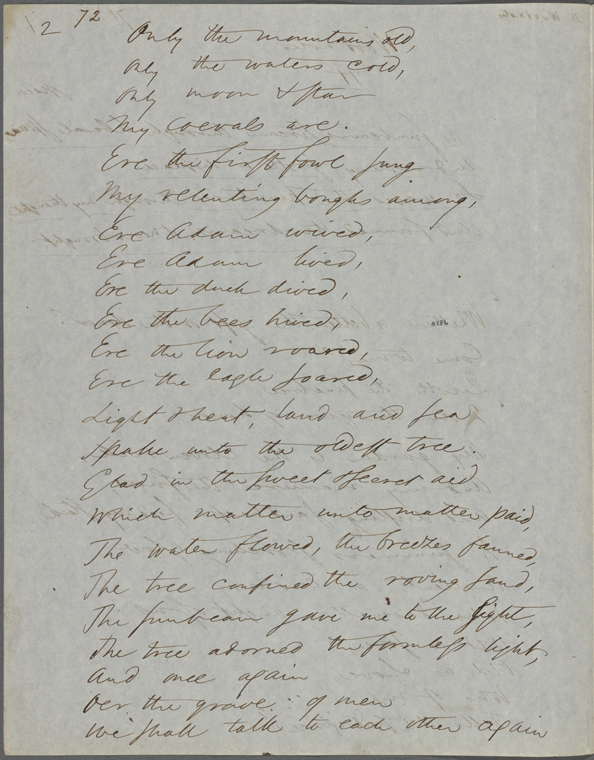 2 72
Only the mountains old,
Only the waters cold,
Only moon & star
My coevals are.
Ere the first fowl sung
My relenting boughs among,
Ere Adam wived,
Ere Adam lived,
Ere the duck dived,
Ere the bees hived,
Ere the lion roared,
Ere the eagle soared,
Light & heat, land and sea
Spake unto the oldest tree.
Glad in the sweet & secret aid
Which matter unto matter paid,
The water flowed, the breezes fanned,
The tree confined the roving sand,
The sunbeam gave me to the sight,
The tree adorned the formless light,
And once again
Oer the grave of men
We shall talk to each other again